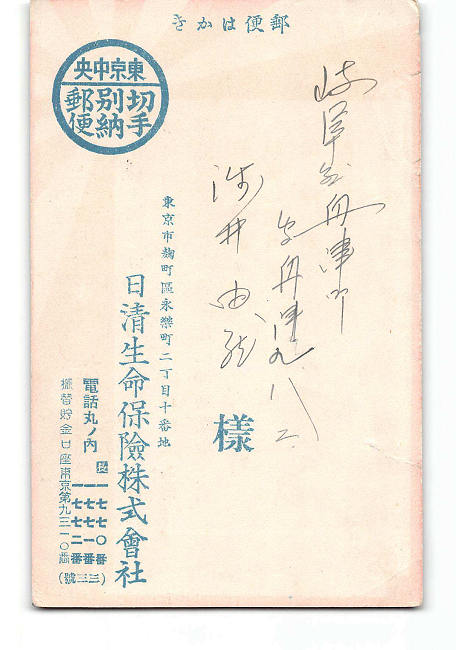 郵便はかき
東京中央
切手
別納
郵便
舟津町
字舟津九八二
様
東京市麹町區永樂町二丁目十番地
日清生命保險株式會社
電話丸ノ内
長
一七七〇番
一七七一番
一七七二番
振替貯金口座東京第九三一〇番
(三三號)